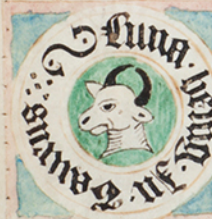 Luna. In. Taurus